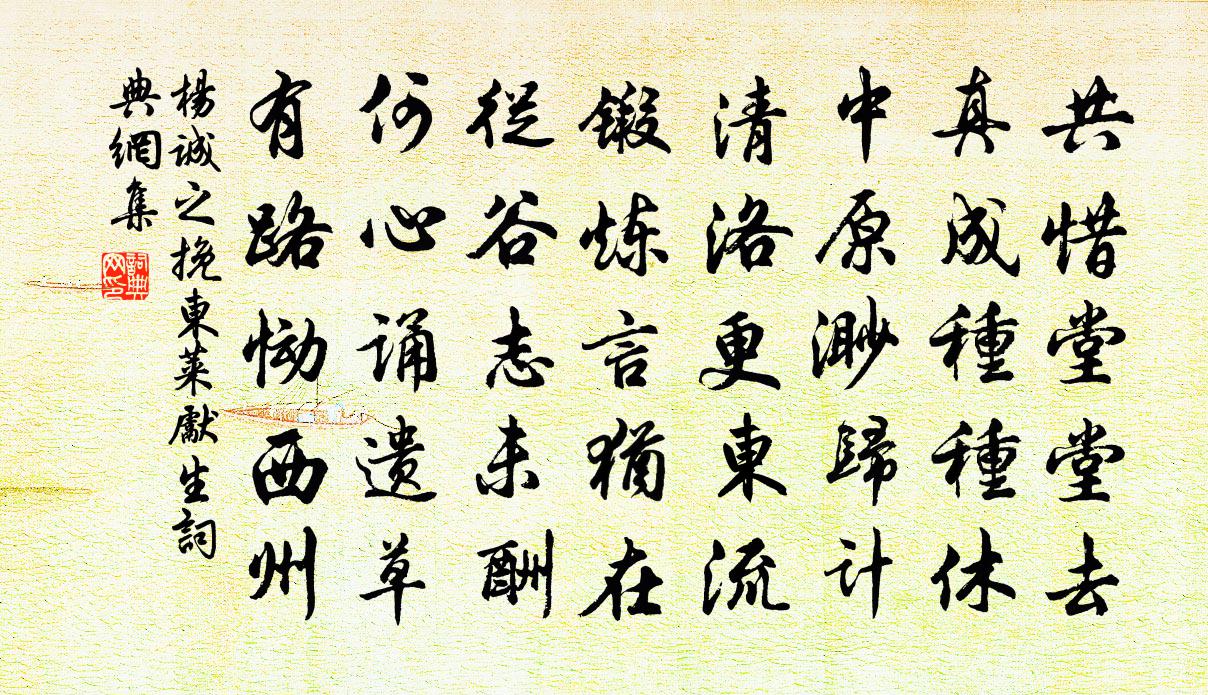 共惜堂堂去
真成種種休
中原渺歸计
清洛更東流
鍛炼言猶在
從谷志未酬
何心诵遗草
有路恸西州
楊誠之挽東萊獻生詞
典網集
詞典網印